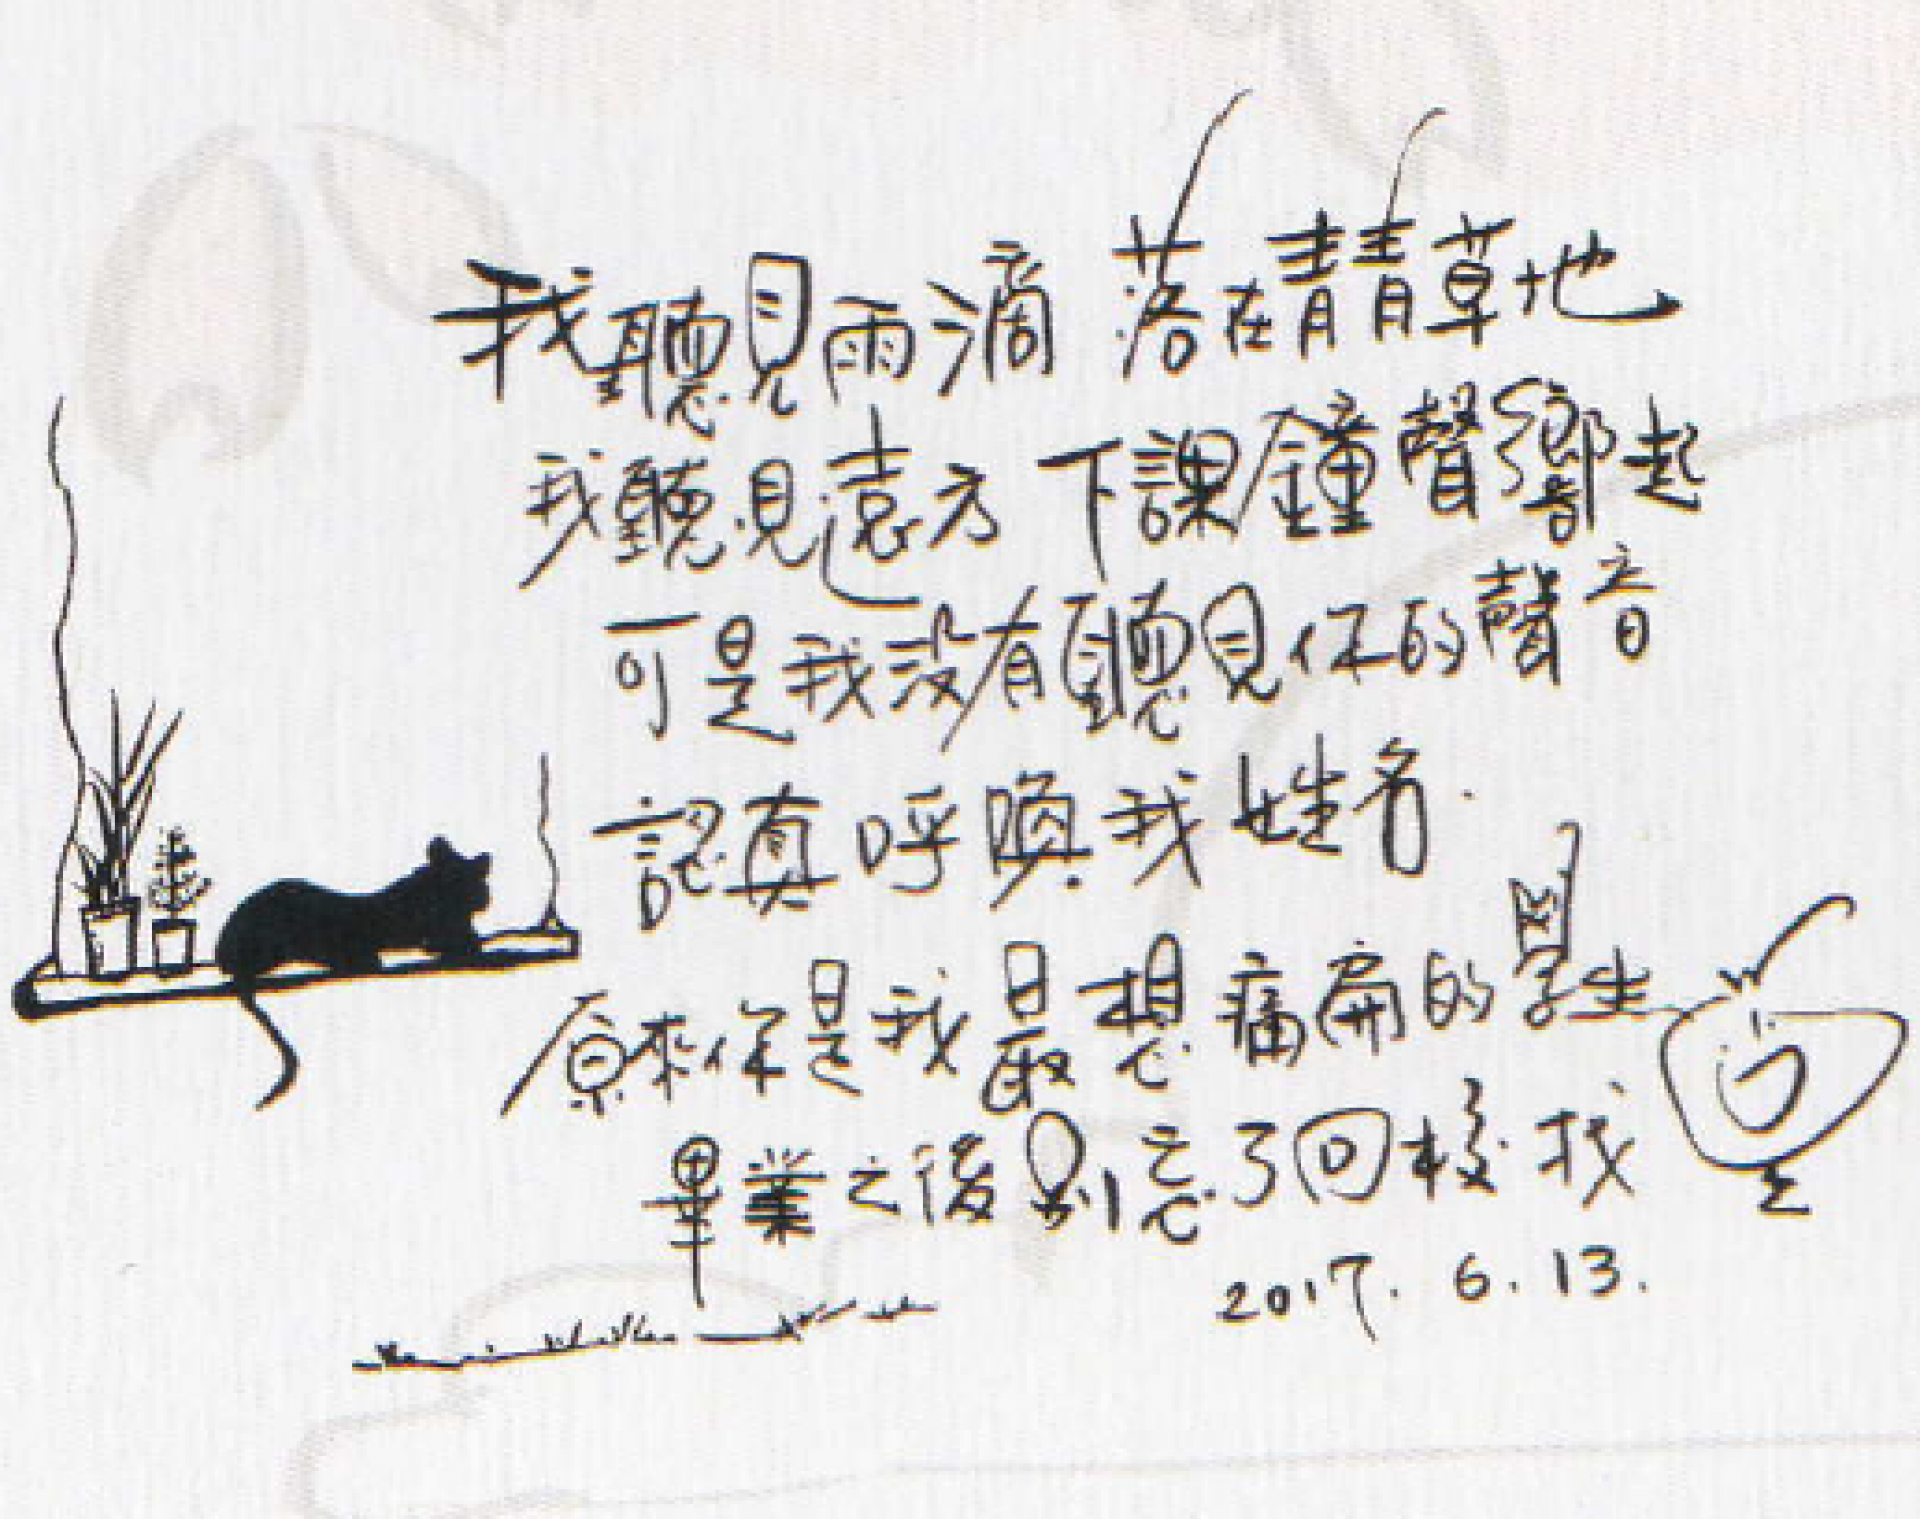 我聽見雨滴 落在青青草地
我聽見遠方 下課鐘聲響起
可是我沒有聽見你的聲音
認真呼喚我姓名.
原來你是我最想痛扁的學生
畢業之後別忘了回校找
2017. 6. 13.